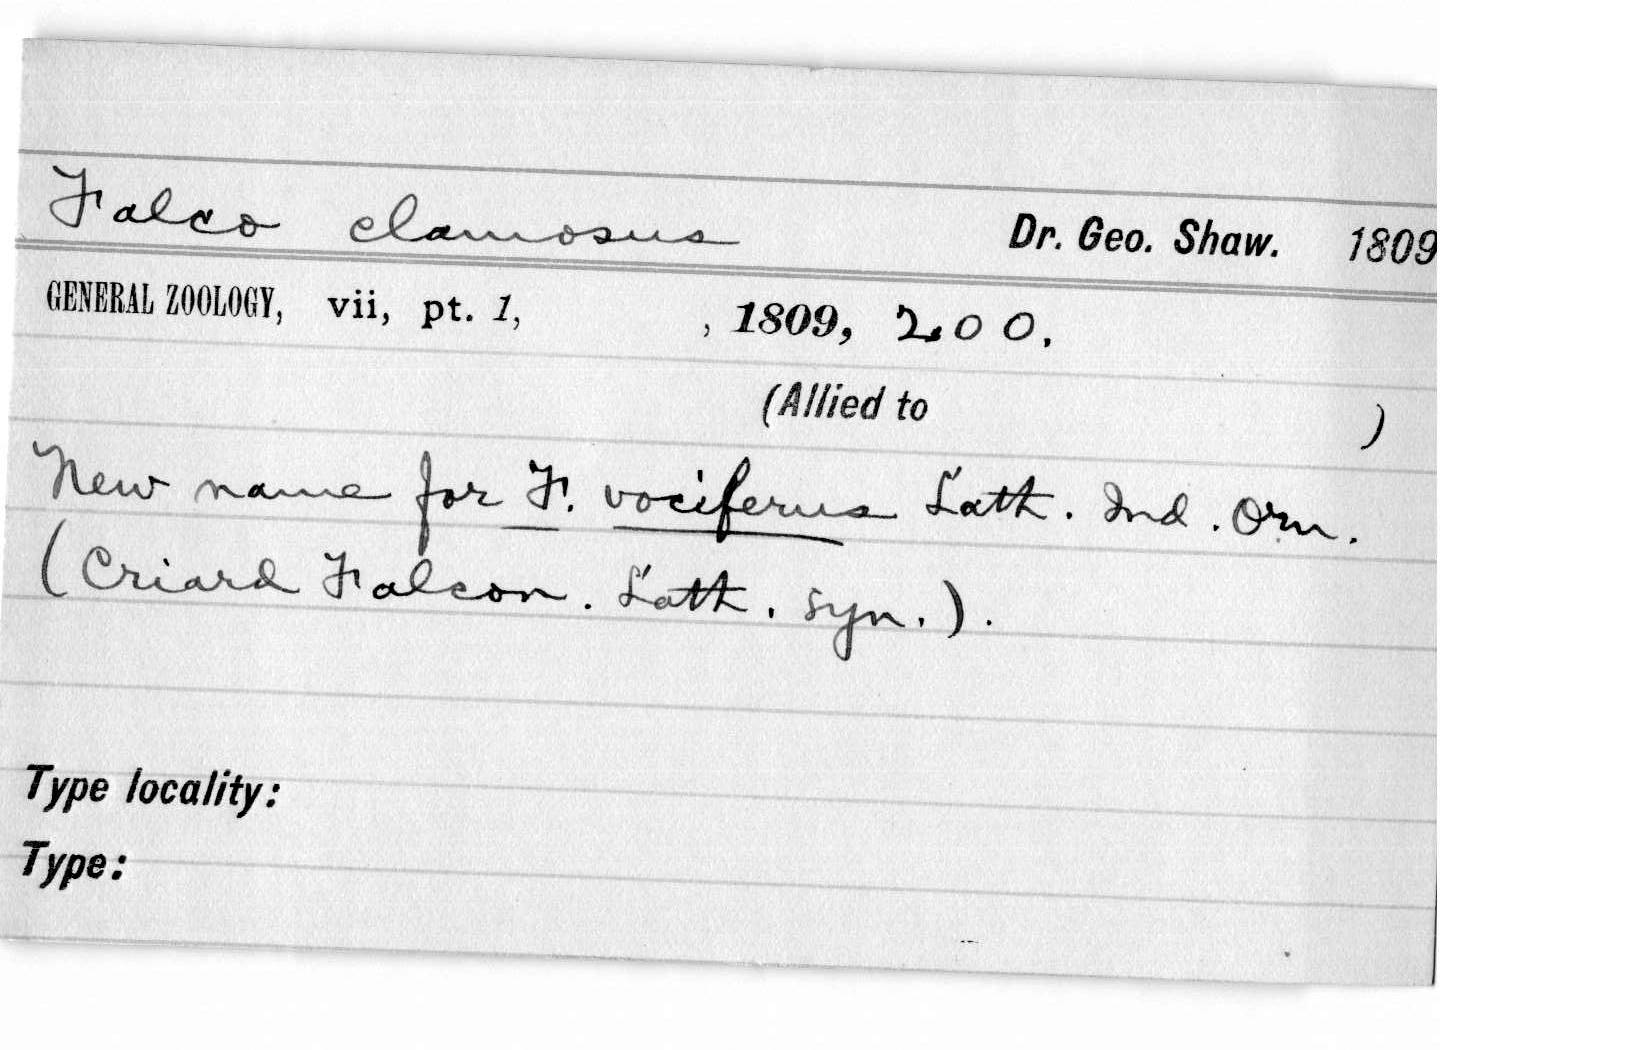 Falco clamosus Dr. Geo. Shaw. 1809
GENERAL ZOOLOGY, vii, pt. 1, , 1809, 200.
(Allied to )
New name for F. vociferus Lath. Ind. Orn.
(Criard Falcon. Lath. Syn.).
Type locality:
Type: